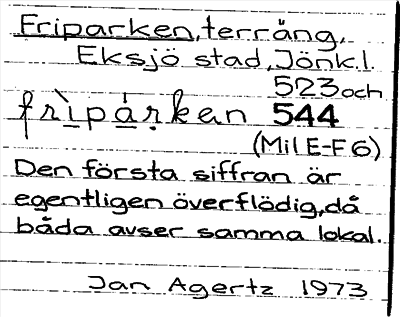 Friparken, terräng,
Eksjö stad, Jönk.l.
523 och
fripárken 544
(Mil E-F6)
Den första siffran är
egentligen överflödig, då
båda avser samma lokal.
Jan Agertz 1973